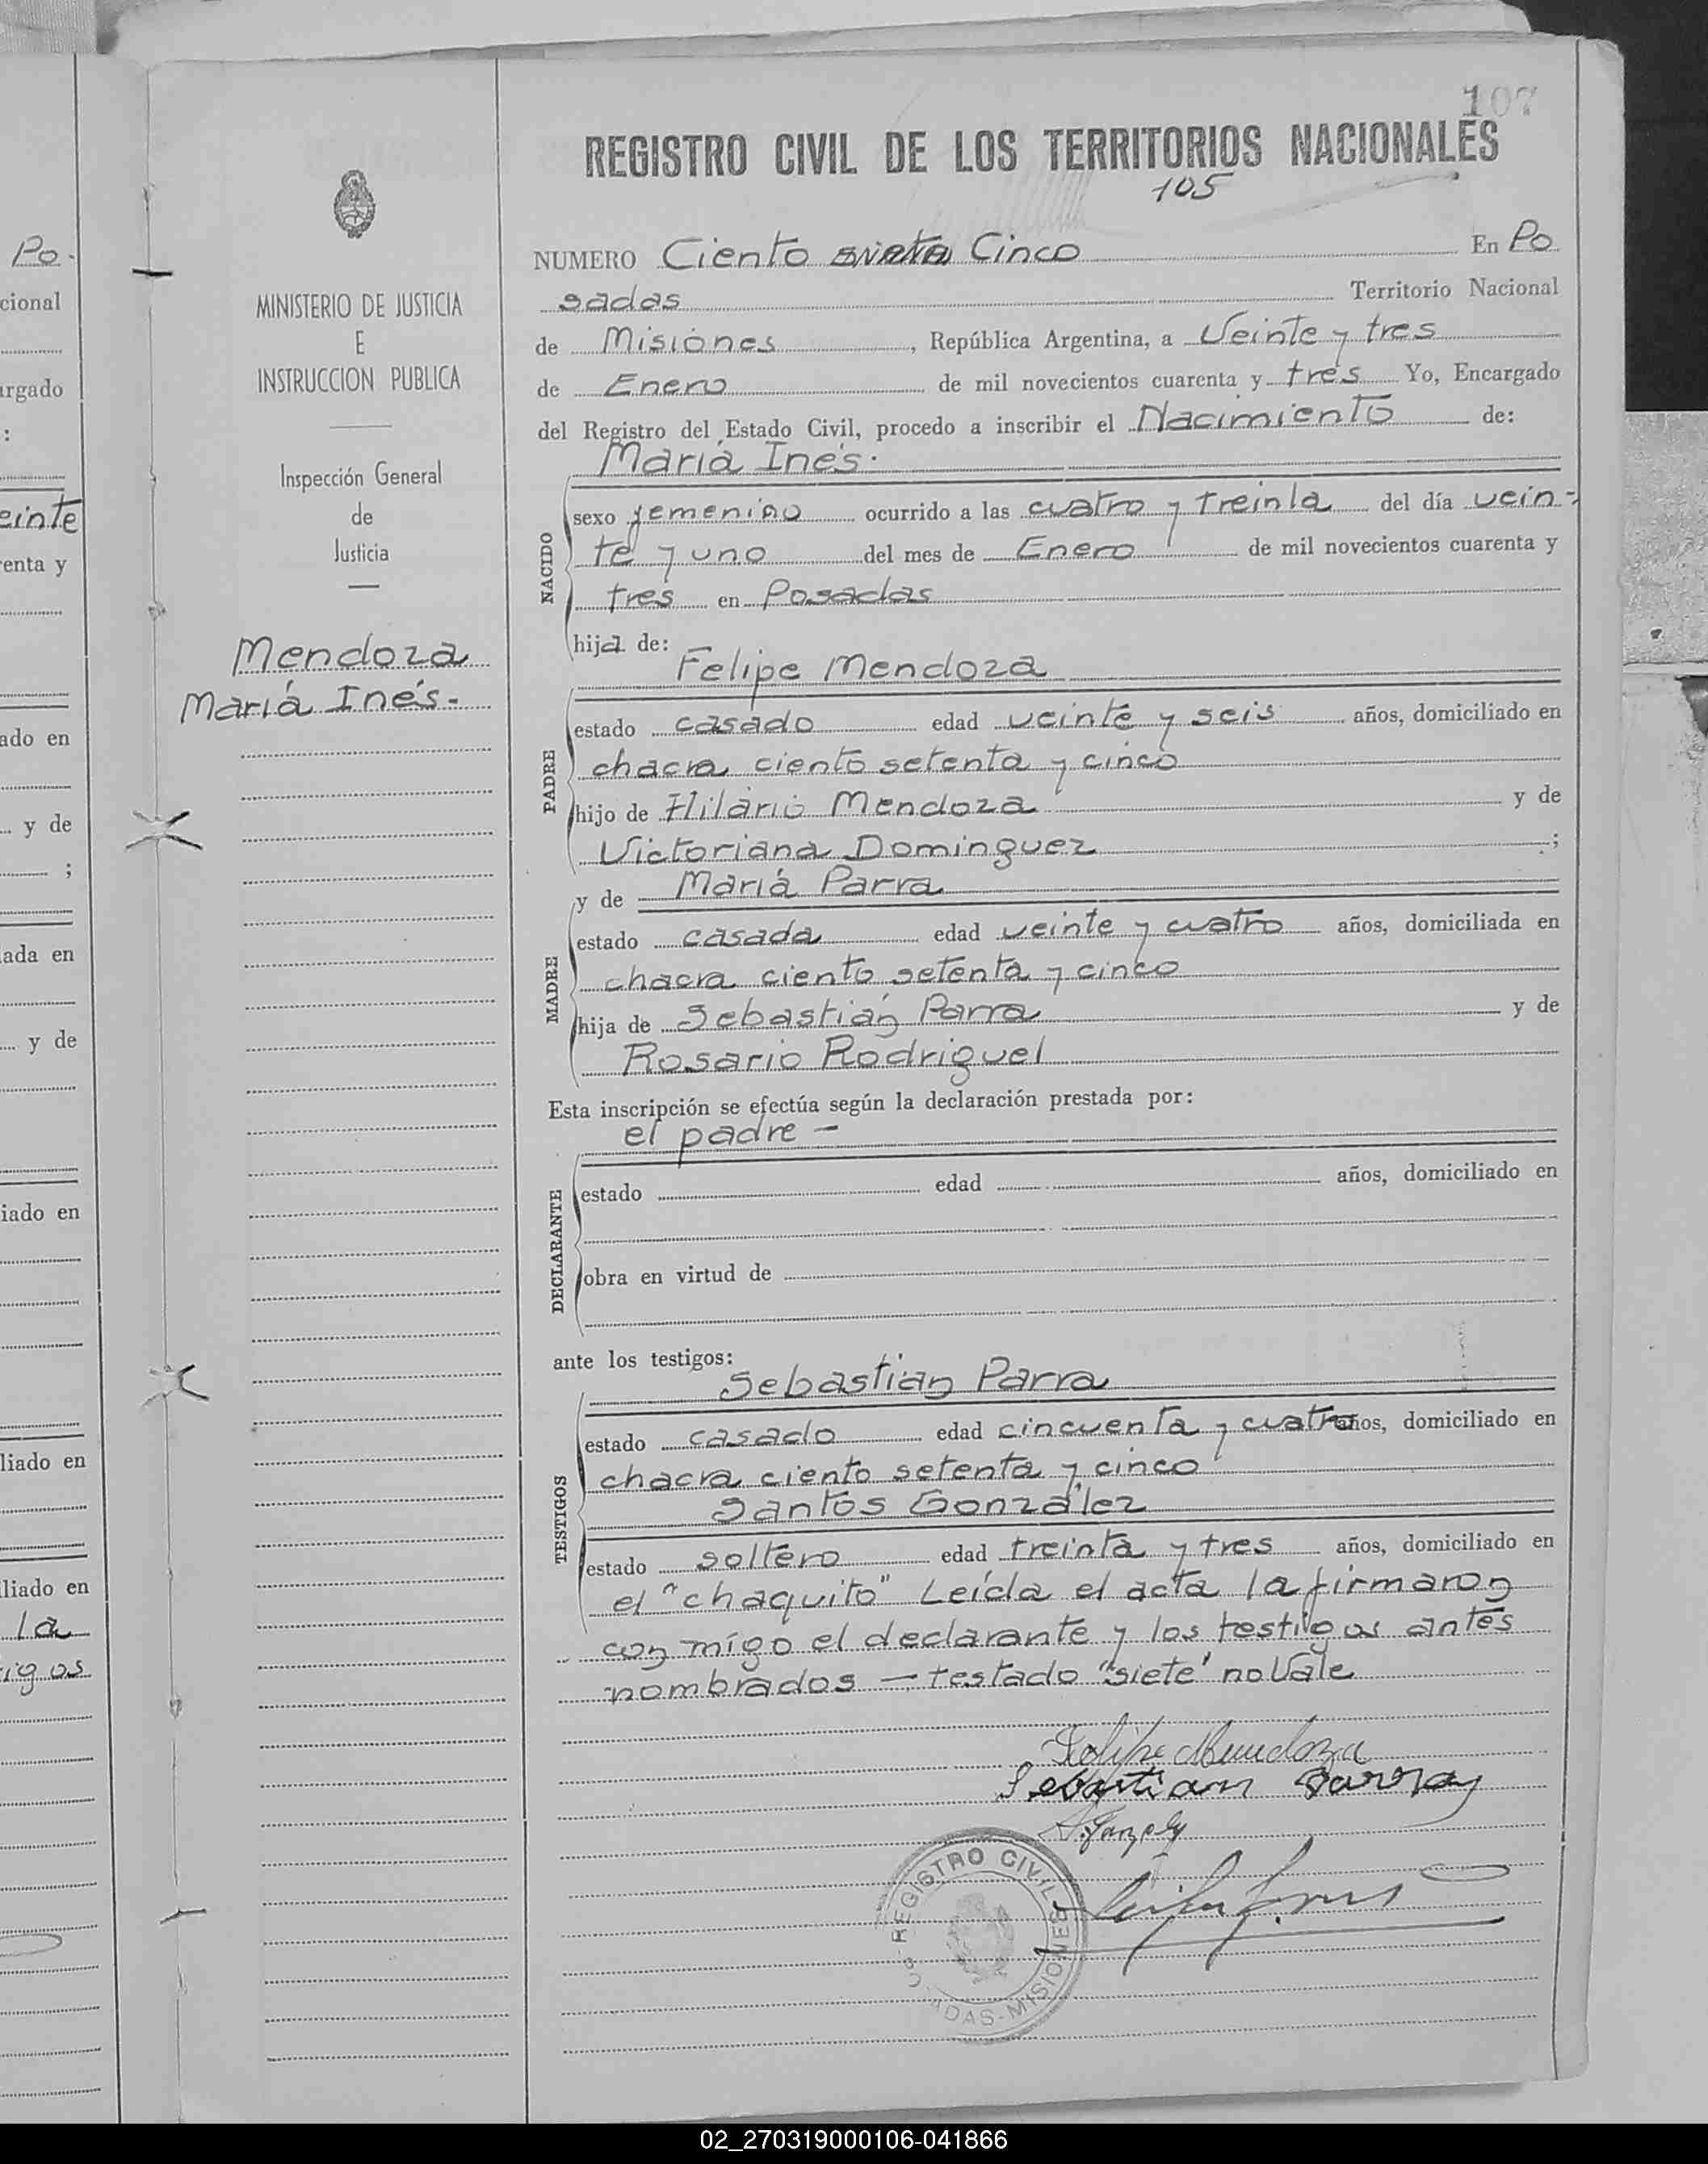 107
REGISTRO CIVIL DE LOS TERRITORIOS NACIONALES
105
NUMERO Ciento siete Cinco En Po
sadas Territorio Nacional
de Misiones, República Argentina, a Veinte y tres
de Enero de mil novecientos cuarenta y tres Yo, Encargado
del Registro del Estado Civil, procedo a inscribir el Nacimiento de:
María Inés.
NACIDO
sexo femenino ocurrido a las cuatro y treinta del día vein-
te y uno del mes de Enero de mil novecientos cuarenta y
tres en Posadas
hija de:
Felipe Mendoza
PADRE
estado casado edad veinte y seis años, domiciliado en
chacra ciento setenta y cinco
hijo de Hilario Mendoza y de
Victoriana Dominguez ;
y de María Parra
MADRE
estado casada edad veinte y cuatro años, domiciliada en
chacra ciento setenta y cinco
hija de Sebastián Parra y de
Rosario Rodriguel
Esta inscripción se efectúa según la declaración prestada por:
el padre -
DECLARANTE
estado edad años, domiciliado en
obra en virtud de
ante los testigos:
Sebastián Parra
TESTIGOS
estado casado edad cincuenta y cuatro años, domiciliado en
chacra ciento setenta y cinco
Santos González
estado soltero edad treinta y tres años, domiciliado en
el "chaquito" Leída el acta la firmaron
con migo el declarante y los testigos antes
nombrados — testado "siete" no Vale
Felipe Mendoza
Sebastian Parra
REGISTRO CIVIL
POSADAS-MISIONES
MINISTERIO DE JUSTICIA
E
INSTRUCCION PUBLICA
Inspección General
de
Justicia
Mendoza
María Inés.-
Po-
cional
argado
:
einte
enta y
ado en
y de
;
ada en
y de
iado en
liado en
liado en
la
igos
02_270319000106-041866